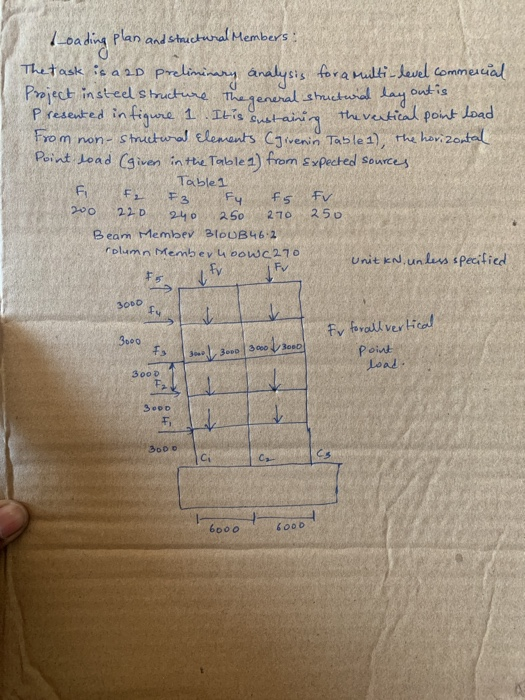 Loading plan and structural Members:
The task is a 2D preliminary analysis for a multi-level commercial
Project in steel structure The general structural lay out is
Presented in figure 1. It is sustaining the vertical point load
From non-structural elements (given in Table 1), the horizontal
Point load (given in the Table 1) from expected sources
Table 1
F1 F2 F3 F4 F5 FV
200 220 240 250 270 250
Beam Member 310UB46.2
Column Member 400WC270
Unit KN, unless specified
F5 Fv Fv
3000 F4
3000 F3 3000 3000 3000 3000
Fv for all vertical
Point
load.
3000 F2
3000 F1
3000
C1 C2 C3
6000 6000